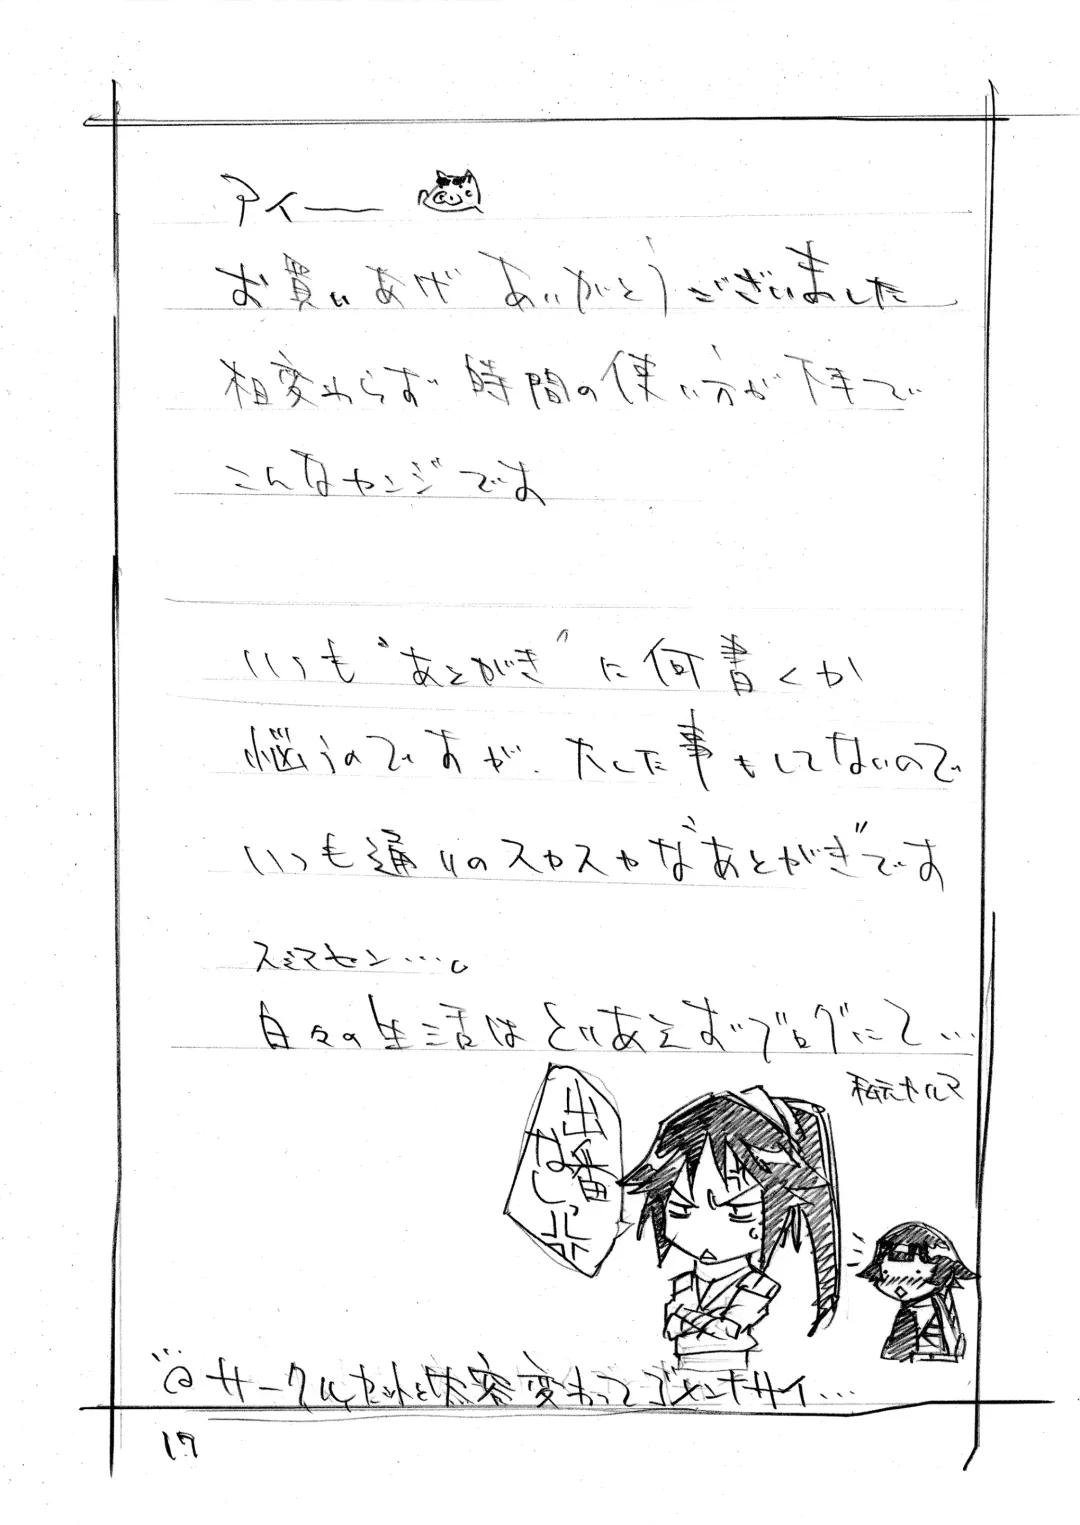 アイー
お買いあげ ありがとうございました
相変わらず 時間の使い方が下手で
こんなカンジです
いつも"あとがき"に何書くか
悩うのですが、大した事もしてないので
いつも通りのスカスカな"あとがき"です
スミマセン…。
日々の生活はとりあえずブログにて…
出番
なしっ
サークルカットと内容変わってゴメンナサイ…
17